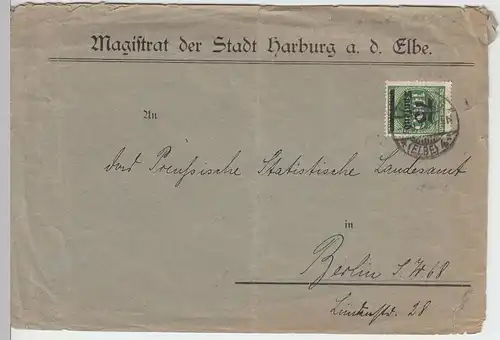 Magistrat der Stadt Harburg a. d. Elbe.
An
das Preußische Statistische Landesamt
in
Berlin S. W 68
Lindenstr. 28
75
(ELBE)